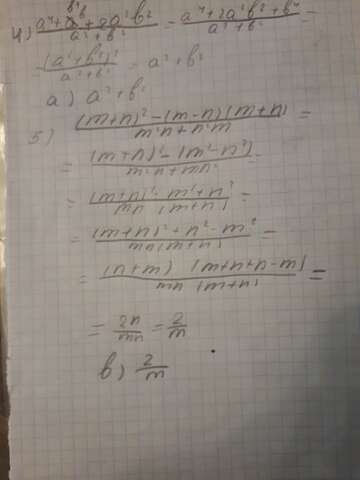 4) (a⁴+b⁴+2a²b²)/(a²+b²) = (a⁴+2a²b²+b⁴)/(a²+b²) =
= (a²+b²)²/(a²+b²) = a²+b²
a) a²+b²
5) ((m+n)²-(m-n)(m+n))/(m²n+n²m) =
= ((m+n)²-(m²-n²))/(m²n+mn²) =
= ((m+n)²-m²+n²)/(mn(m+n)) =
= ((m+n)²+n²-m²)/(mn(m+n)) =
= ((n+m)(m+n+n-m))/(mn(m+n)) =
= 2n/mn = 2/m
b) 2/m